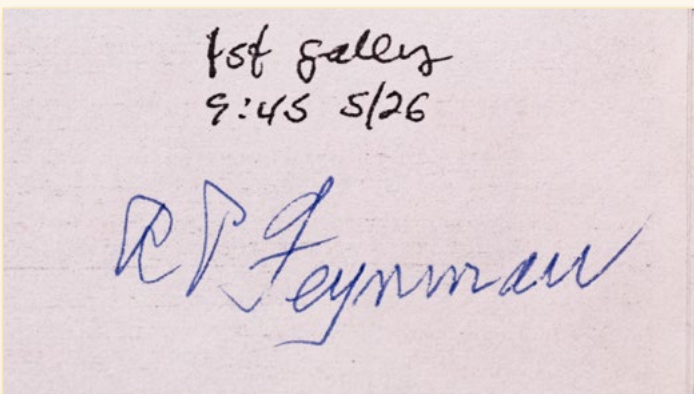 1st galley
9:45 5/26
R P Feynman